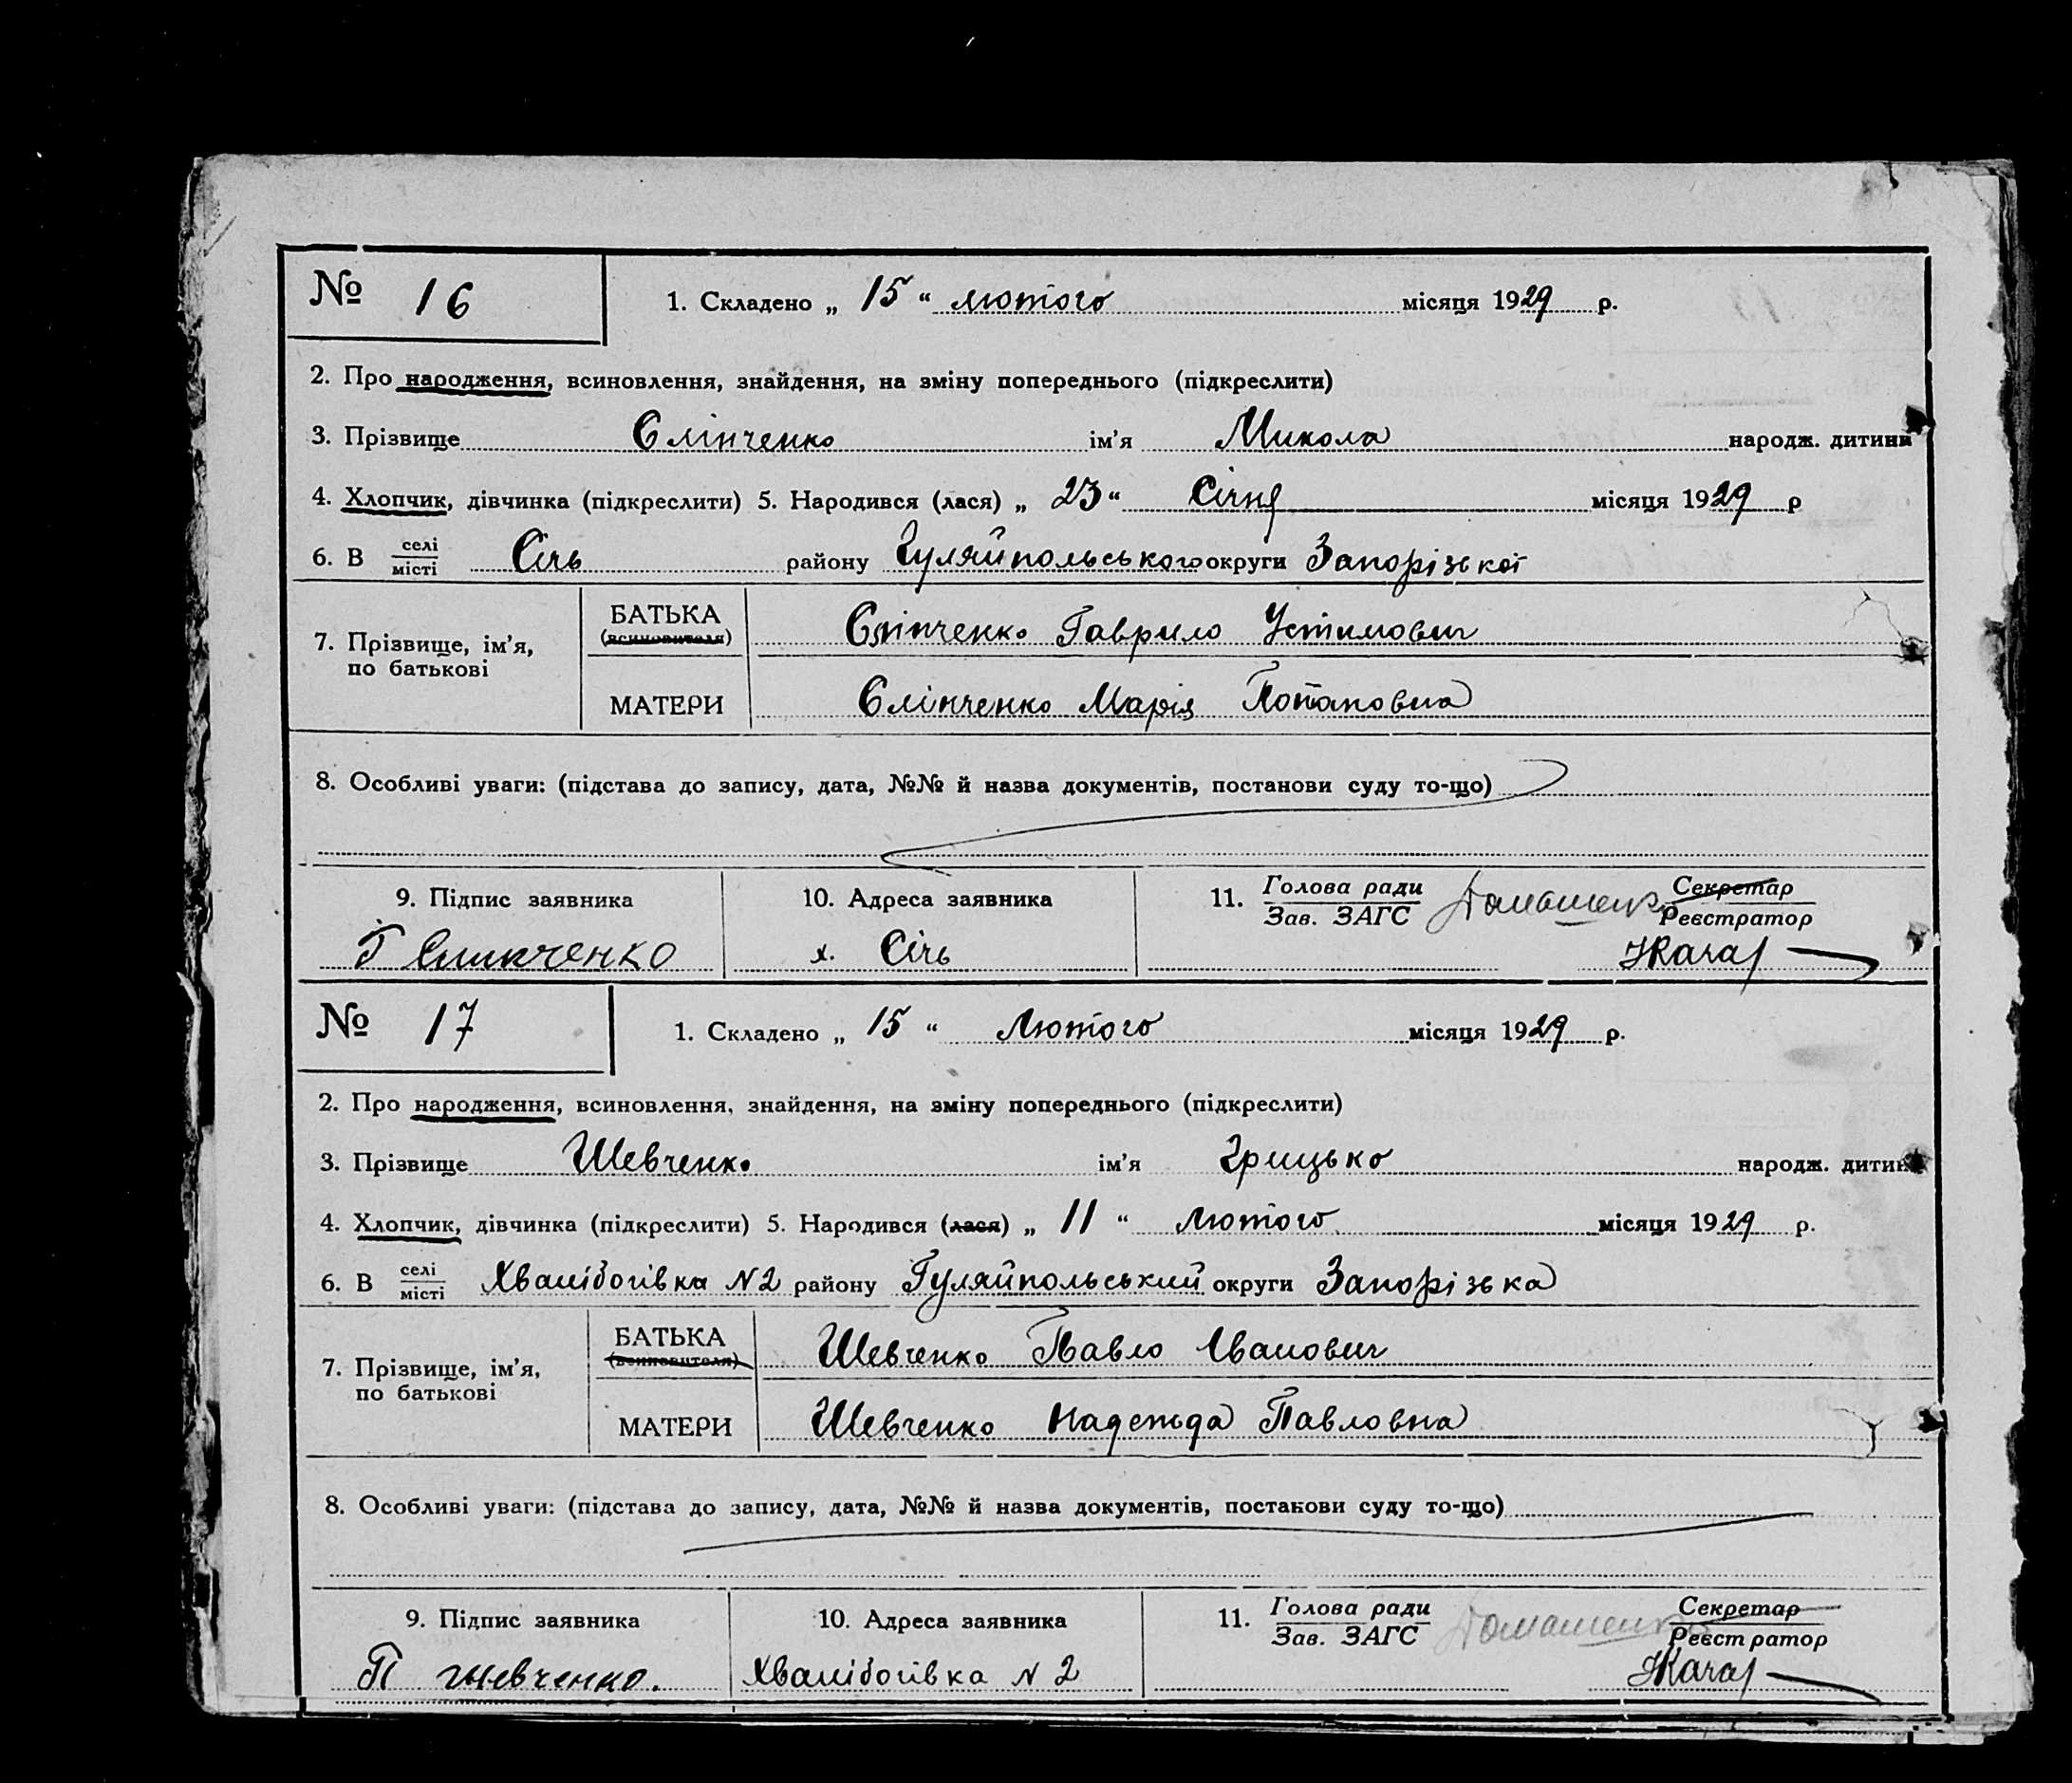 № 16 1. Складено „ 15 “ лютого місяця 1929 р.
2. Про народження, всиновлення, знайдення, на зміну попереднього (підкреслити)
3. Прізвище Єлінченко ім’я Микола народж. дитини
4. Хлопчик, дівчинка (підкреслити) 5. Народився (лася) „ 23 “ Січня місяця 1929 р
6. В селі місті Січь району Гуляйпольського округи Запорізької
7. Прізвище, ім’я, по батькові
БАТЬКА (всиновителя) Єлінченко Гаврило Устимович
МАТЕРИ Єлінченко Марія Потаповна
8. Особливі уваги: (підстава до запису, дата, №№ й назва документів, постанови суду то-що)
9. Підпис заявника 10. Адреса заявника 11. Голова ради Зав. ЗАГС Секретар Реєстратор
Г х. Січь
№ 17 1. Складено „ 15 “ Лютого місяця 1929 р.
2. Про народження, всиновлення, знайдення, на зміну попереднього (підкреслити)
3. Прізвище Шевченко ім’я Грицько народж. дитин
4. Хлопчик, дівчинка (підкреслити) 5. Народився (лася) „ 11 “ Лютого місяця 1929 р.
6. В селі місті N 2 району Гуляйпольський округи Запорізька
7. Прізвище, ім’я, по батькові
БАТЬКА (всиновителя) Шевченко Павло Іванович
МАТЕРИ Шевченко Надежда Павловна
8. Особливі уваги: (підстава до запису, дата, №№ й назва документів, постанови суду то-що)
9. Підпис заявника 10. Адреса заявника 11. Голова ради Зав. ЗАГС Секретар Реєстратор
П Шевченко. N 2